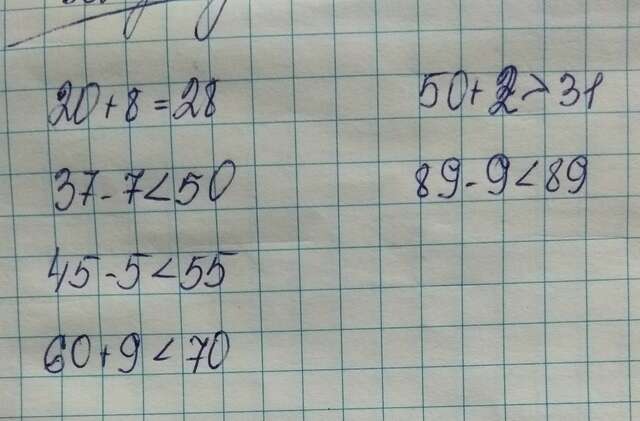 20+8=28
37-7<50
45-5<55
60+9<70
50+2>31
89-9<89